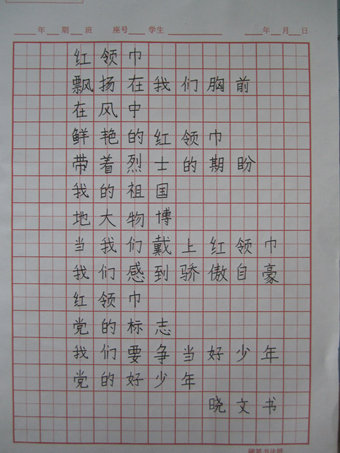 年 期 班 座号 学生 年 月 日
红领巾
飘扬在我们胸前
在风中
鲜艳的红领巾
带着烈士的期盼
我的祖国
地大物博
当我们戴上红领巾
我们感到骄傲自豪
红领巾
党的标志
我们要争当好少年
党的好少年
晓文书